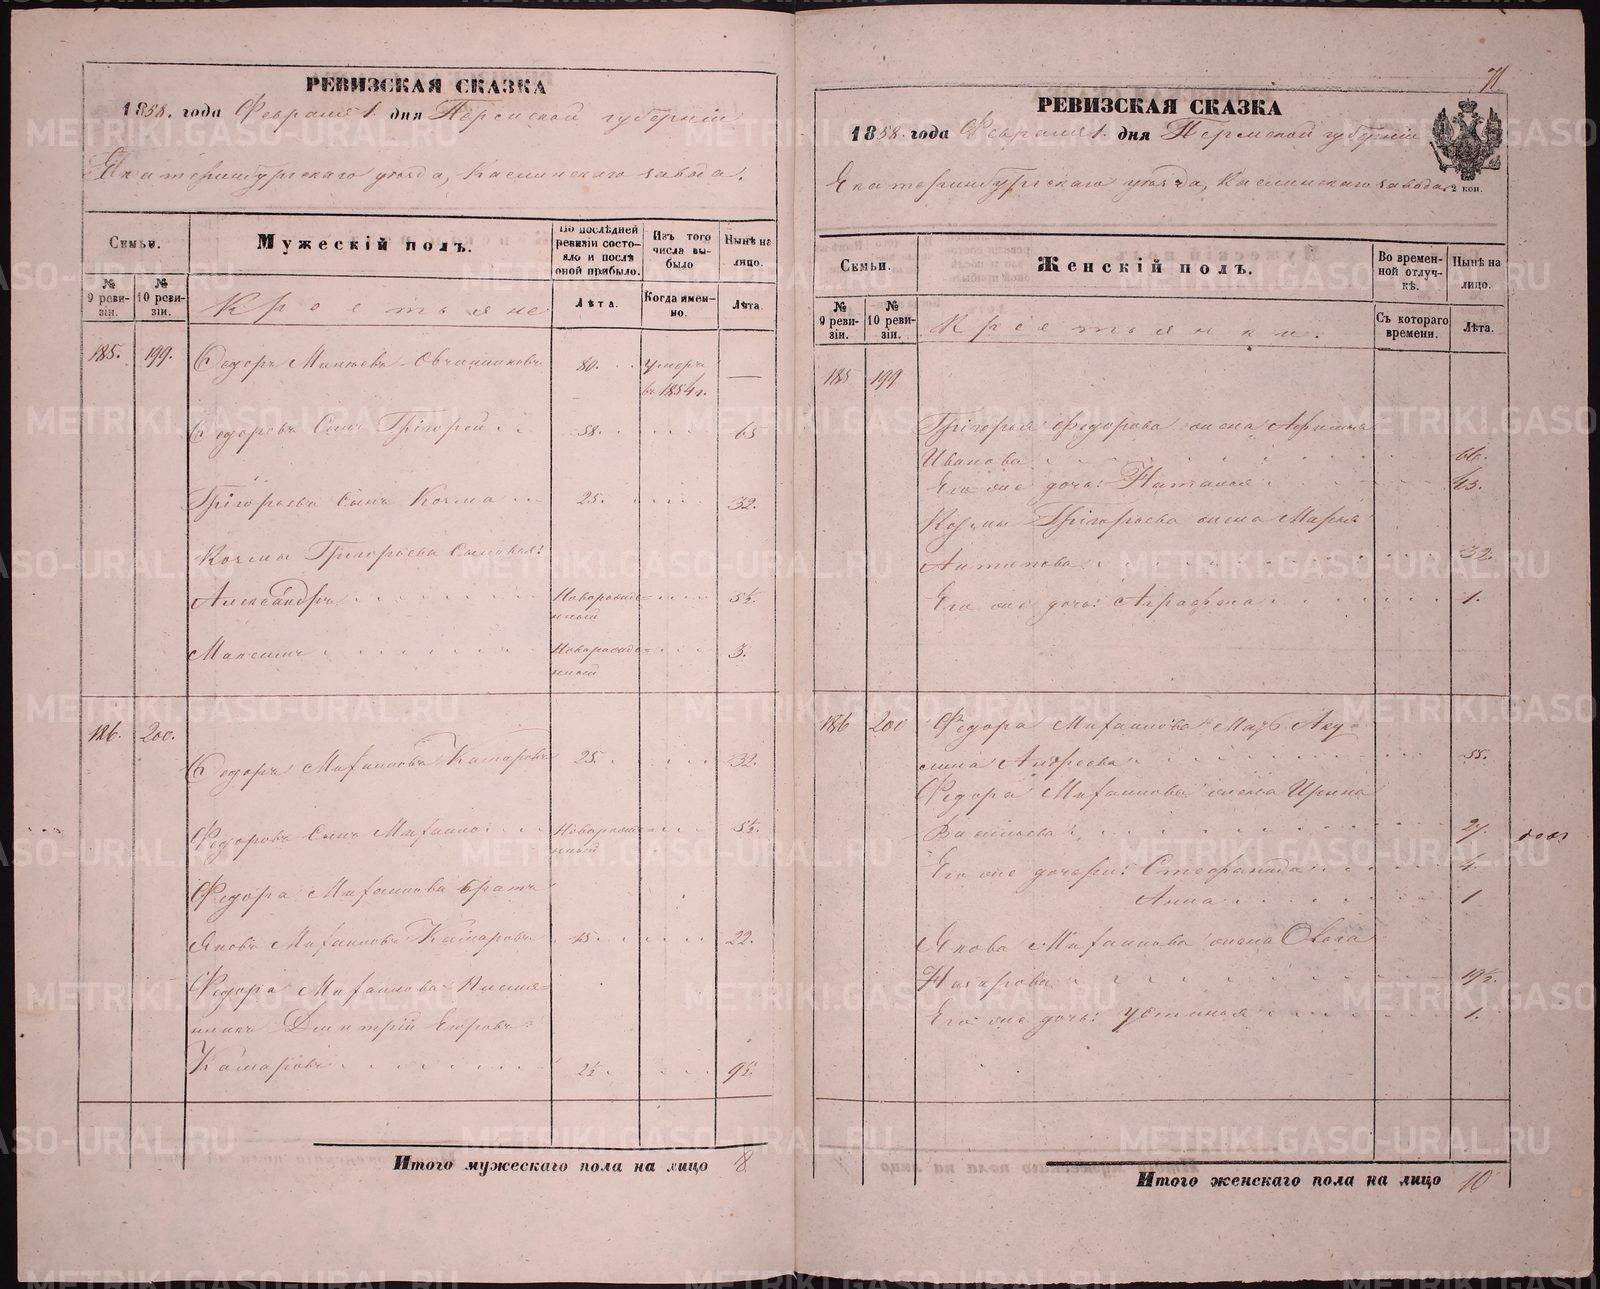 РЕВИЗСКАЯ СКАЗКА
1858. года Февраля 1. дня Пермской губерніи
Екатеринбургскаго уѣзда, Каслинскаго завода.
Семьи.
Мужескій полъ.
По послѣдней ревизіи состояло и послѣ оной прибыло.
Изъ того числа выбыло
Нынѣ на лицо.
№ 9 ревизіи.
№ 10 ревизіи.
Крестьяне
Лѣта.
Когда именно.
Лѣта.
185. 199. Федоръ Овчинниковъ 80. умеръ въ 1854 г. —
Федоровъ Сынъ Григорей 58. 65
Григорьевъ Сынъ Козма 25. 32.
Козмы Григорьева Сыновья:
Александръ Новорожденный 5½
Максимъ Новорожденный 3.
186. 200.
Федоръ Михайловъ Комаровъ 25. 32.
Федоровъ Сынъ Михайло Новорожденный 5½.
Федора Михайлова братъ
Яковъ Михайловъ Комаровъ 15. 22.
Федора Михайлова Племянникъ Дмитрій Егоровъ
Комаровъ 2½. 9½.
Итого мужескаго пола на лицо 8
71
РЕВИЗСКАЯ СКАЗКА
1858. года Февраля 1. дня Пермской губерніи
Екатеринбургскаго уѣзда, Каслинскаго завода.
2 коп.
Семьи.
Женскій полъ.
Во временной отлучкѣ.
Нынѣ на лицо.
№ 9 ревизіи.
№ 10 ревизіи.
Крестьянки.
Съ котораго времени.
Лѣта.
185 199
Григорья Федорова жена Афимья
Иванова 66.
Его же дочь: Наталья 43.
Козмы Григорьева жена Марья
Антипова 32.
Его же дочь: Аграфена 1.
186 200 Федора Михайлова Мать Акулина Андреева 55.
Федора Михайлова жена Ирина
Васильева 27.
Его же дочери: Стефанида 4.
Анна 1
Якова Михайлова жена Ольга
Назарова 19½.
Его же дочь: Устинья 1.
Итого женскаго пола на лицо 10
METRIKI.GASO-URAL.RU